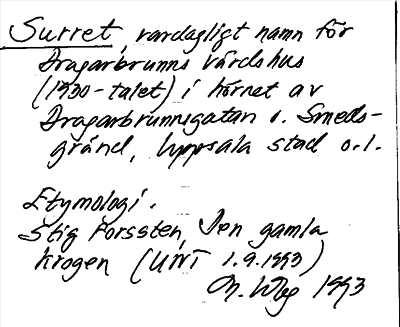 Surret, vardagligt namn för
Dragarbrunns värdshus
(1930-talet) i hörnet av
Dragarbrunnsgatan o. Smeds-
gränd, Uppsala stad o.l.
Etymologi.
Stig Forssten, Den gamla
krogen (UNT 1.9.1993)
1993